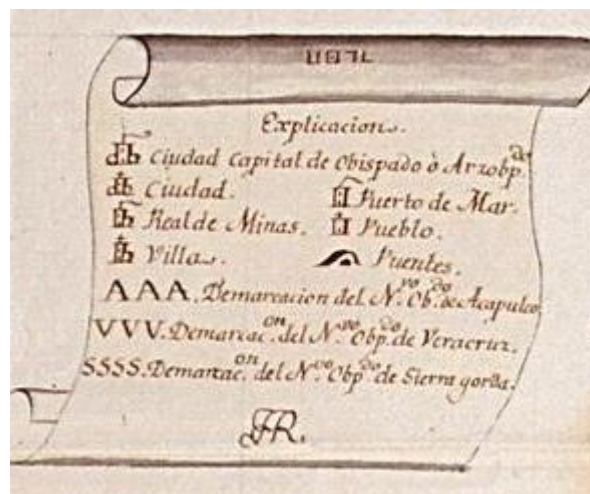 Explicacion.
Ciudad Capital de Obispado ò Arzobp.do
Ciudad. Puerto de Mar.
Real de Minas. Pueblo.
Villa. Puentes.
AAA. Demarcacion del N.vo Ob.do de Acapulco
VVV. Demarcac.on del N.vo Obp.do de Veracruz.
SSSS. Demarcac.on del N.vo Obp.do de Sierra gorda.